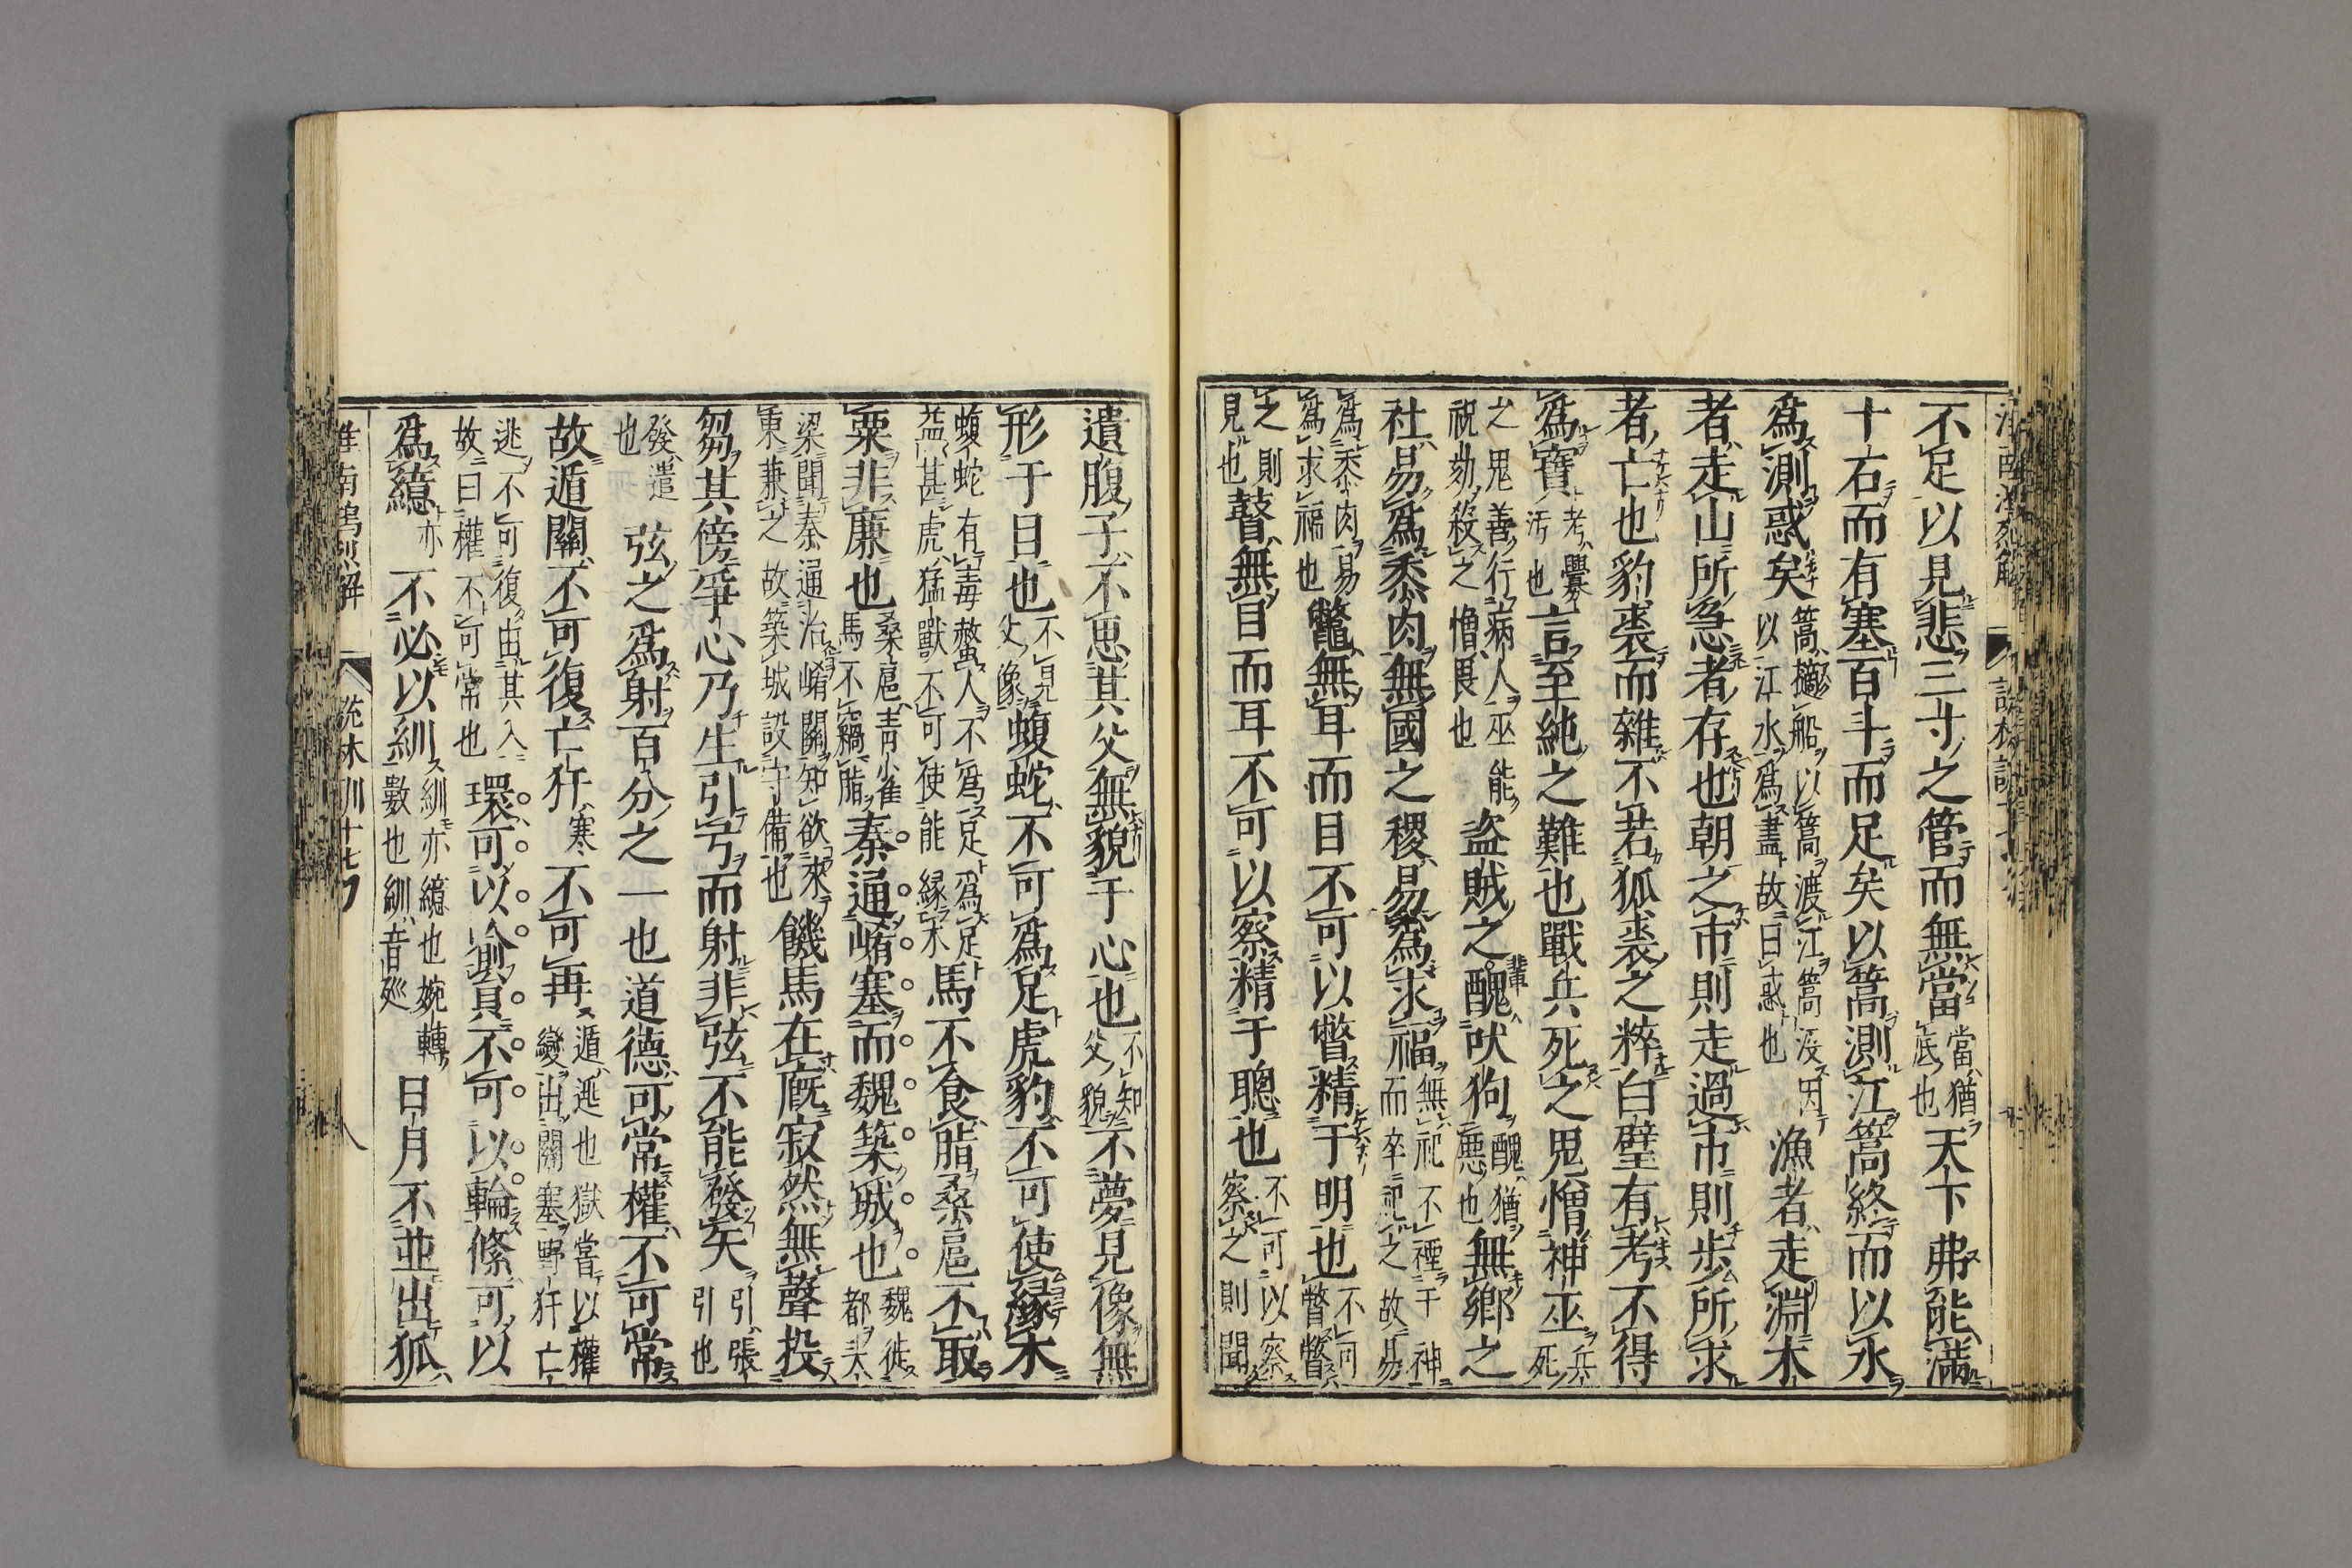 不足以見悲三寸之管而無當當猶底也天下弗能滿
十石而有塞百斗而足矣以篙測江篙終而以水
爲測惑矣篙擿船以篙渡江篙沒因以江水爲盡故曰惑也漁者走淵木
者走山所急者存也朝之市則走過市則步所求
者亡也豹裘而雜不若狐裘之粹白璧有考不得
爲寶考釁汚也言至純之難也戰兵死之鬼憎神巫兵死
之鬼善行病人巫能祝劾殺之憎畏也盜賊之輩醜吠狗醜猶惡也無鄉之
社易爲黍肉無國之稷易爲求福無祀不禋于神而卒祀之故易
爲黍肉易爲求福也鼈無耳而目不可以瞥精于明也不可瞥瞥
之則見也瞽無目而耳不可以察精于聰也不可以察察之則聞
遺腹子不思其父無貌于心也不知父貌不夢見像無
形于目也不見父像蝮蛇不可爲足虎豹不可使緣木
蝮蛇有毒螫人不爲足爲足益甚虎猛獸不可使能緣木馬不食脂桑扈不取
粟非廉也桑扈青雀馬不竊脂秦通崤塞而魏築城也魏徙都大
梁聞秦通治崤關知欲來東兼之故築城設守備也饑馬在廐寂然無聲投
芻其傍爭心乃生引弓而射非弦不能發矢引張引也
發遣也弦之爲射百分之一也道德可常權不可常
故遁關不可復亡犴不可再遁逃也獄當以權變出關塞野犴亡
逃不可復由其入故曰權不可常也環可以喩員不可以輪絛可以
爲繶亦不必以紃紃亦繶也婉轉數也紃音巡日月不並出狐
淮南鴻烈解 說林訓十七 八